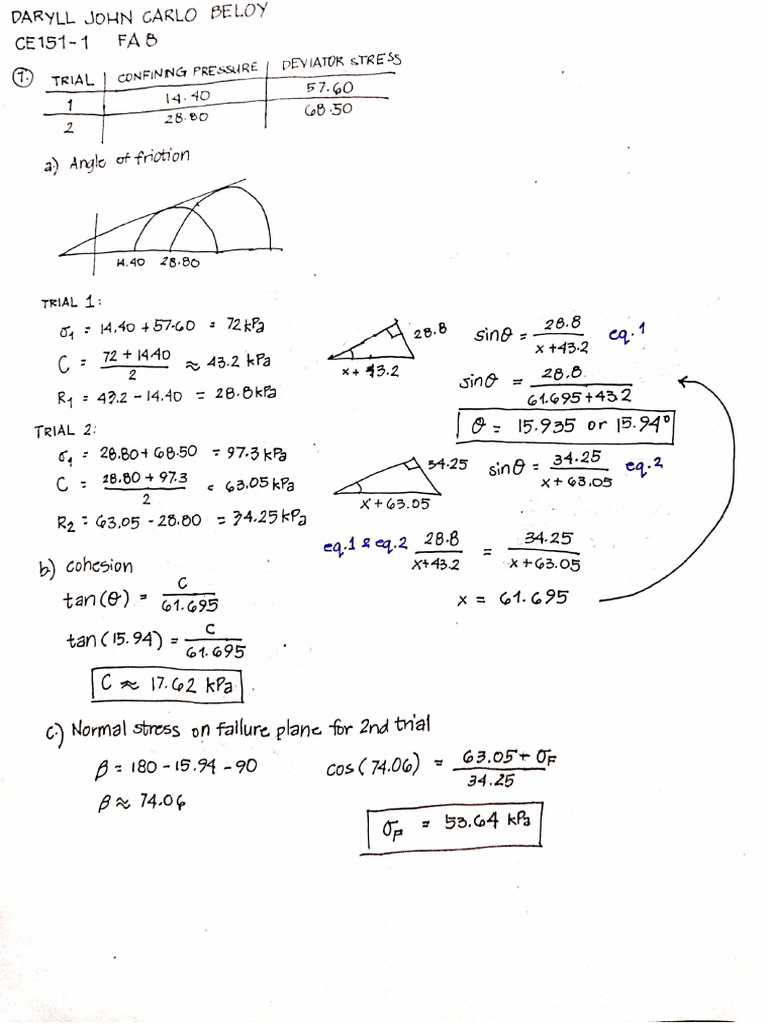 DARYLL JOHN CARLO BELOY
CE151-1 FA8
7. TRIAL CONFINING PRESSURE DEVIATOR STRESS
1 14.40 57.60
2 28.80 68.50
a.) Angle of friction
14.40 28.80
TRIAL 1:
σ1 = 14.40 + 57.60 = 72 kPa
C = 72 + 14.40 / 2 ≈ 43.2 kPa
R1 = 43.2 - 14.40 = 28.8 kPa
28.8
x + 43.2
sinθ = 28.8 / x + 43.2 eq.1
sinθ = 28.8 / 61.695 + 43.2
θ = 15.935 or 15.94°
TRIAL 2:
σ1 = 28.80 + 68.50 = 97.3 kPa
C = 28.80 + 97.3 / 2 = 63.05 kPa
R2 = 63.05 - 28.80 = 34.25 kPa
34.25
x + 63.05
sinθ = 34.25 / x + 63.05 eq.2
eq.1 & eq.2 28.8 / x + 43.2 = 34.25 / x + 63.05
x = 61.695
b.) cohesion
tan(θ) = C / 61.695
tan(15.94) = C / 61.695
C ≈ 17.62 kPa
c.) Normal stress on failure plane for 2nd trial
β = 180 - 15.94 - 90
β ≈ 74.06
cos(74.06) = 63.05 + σF / 34.25
σF = 53.64 kPa